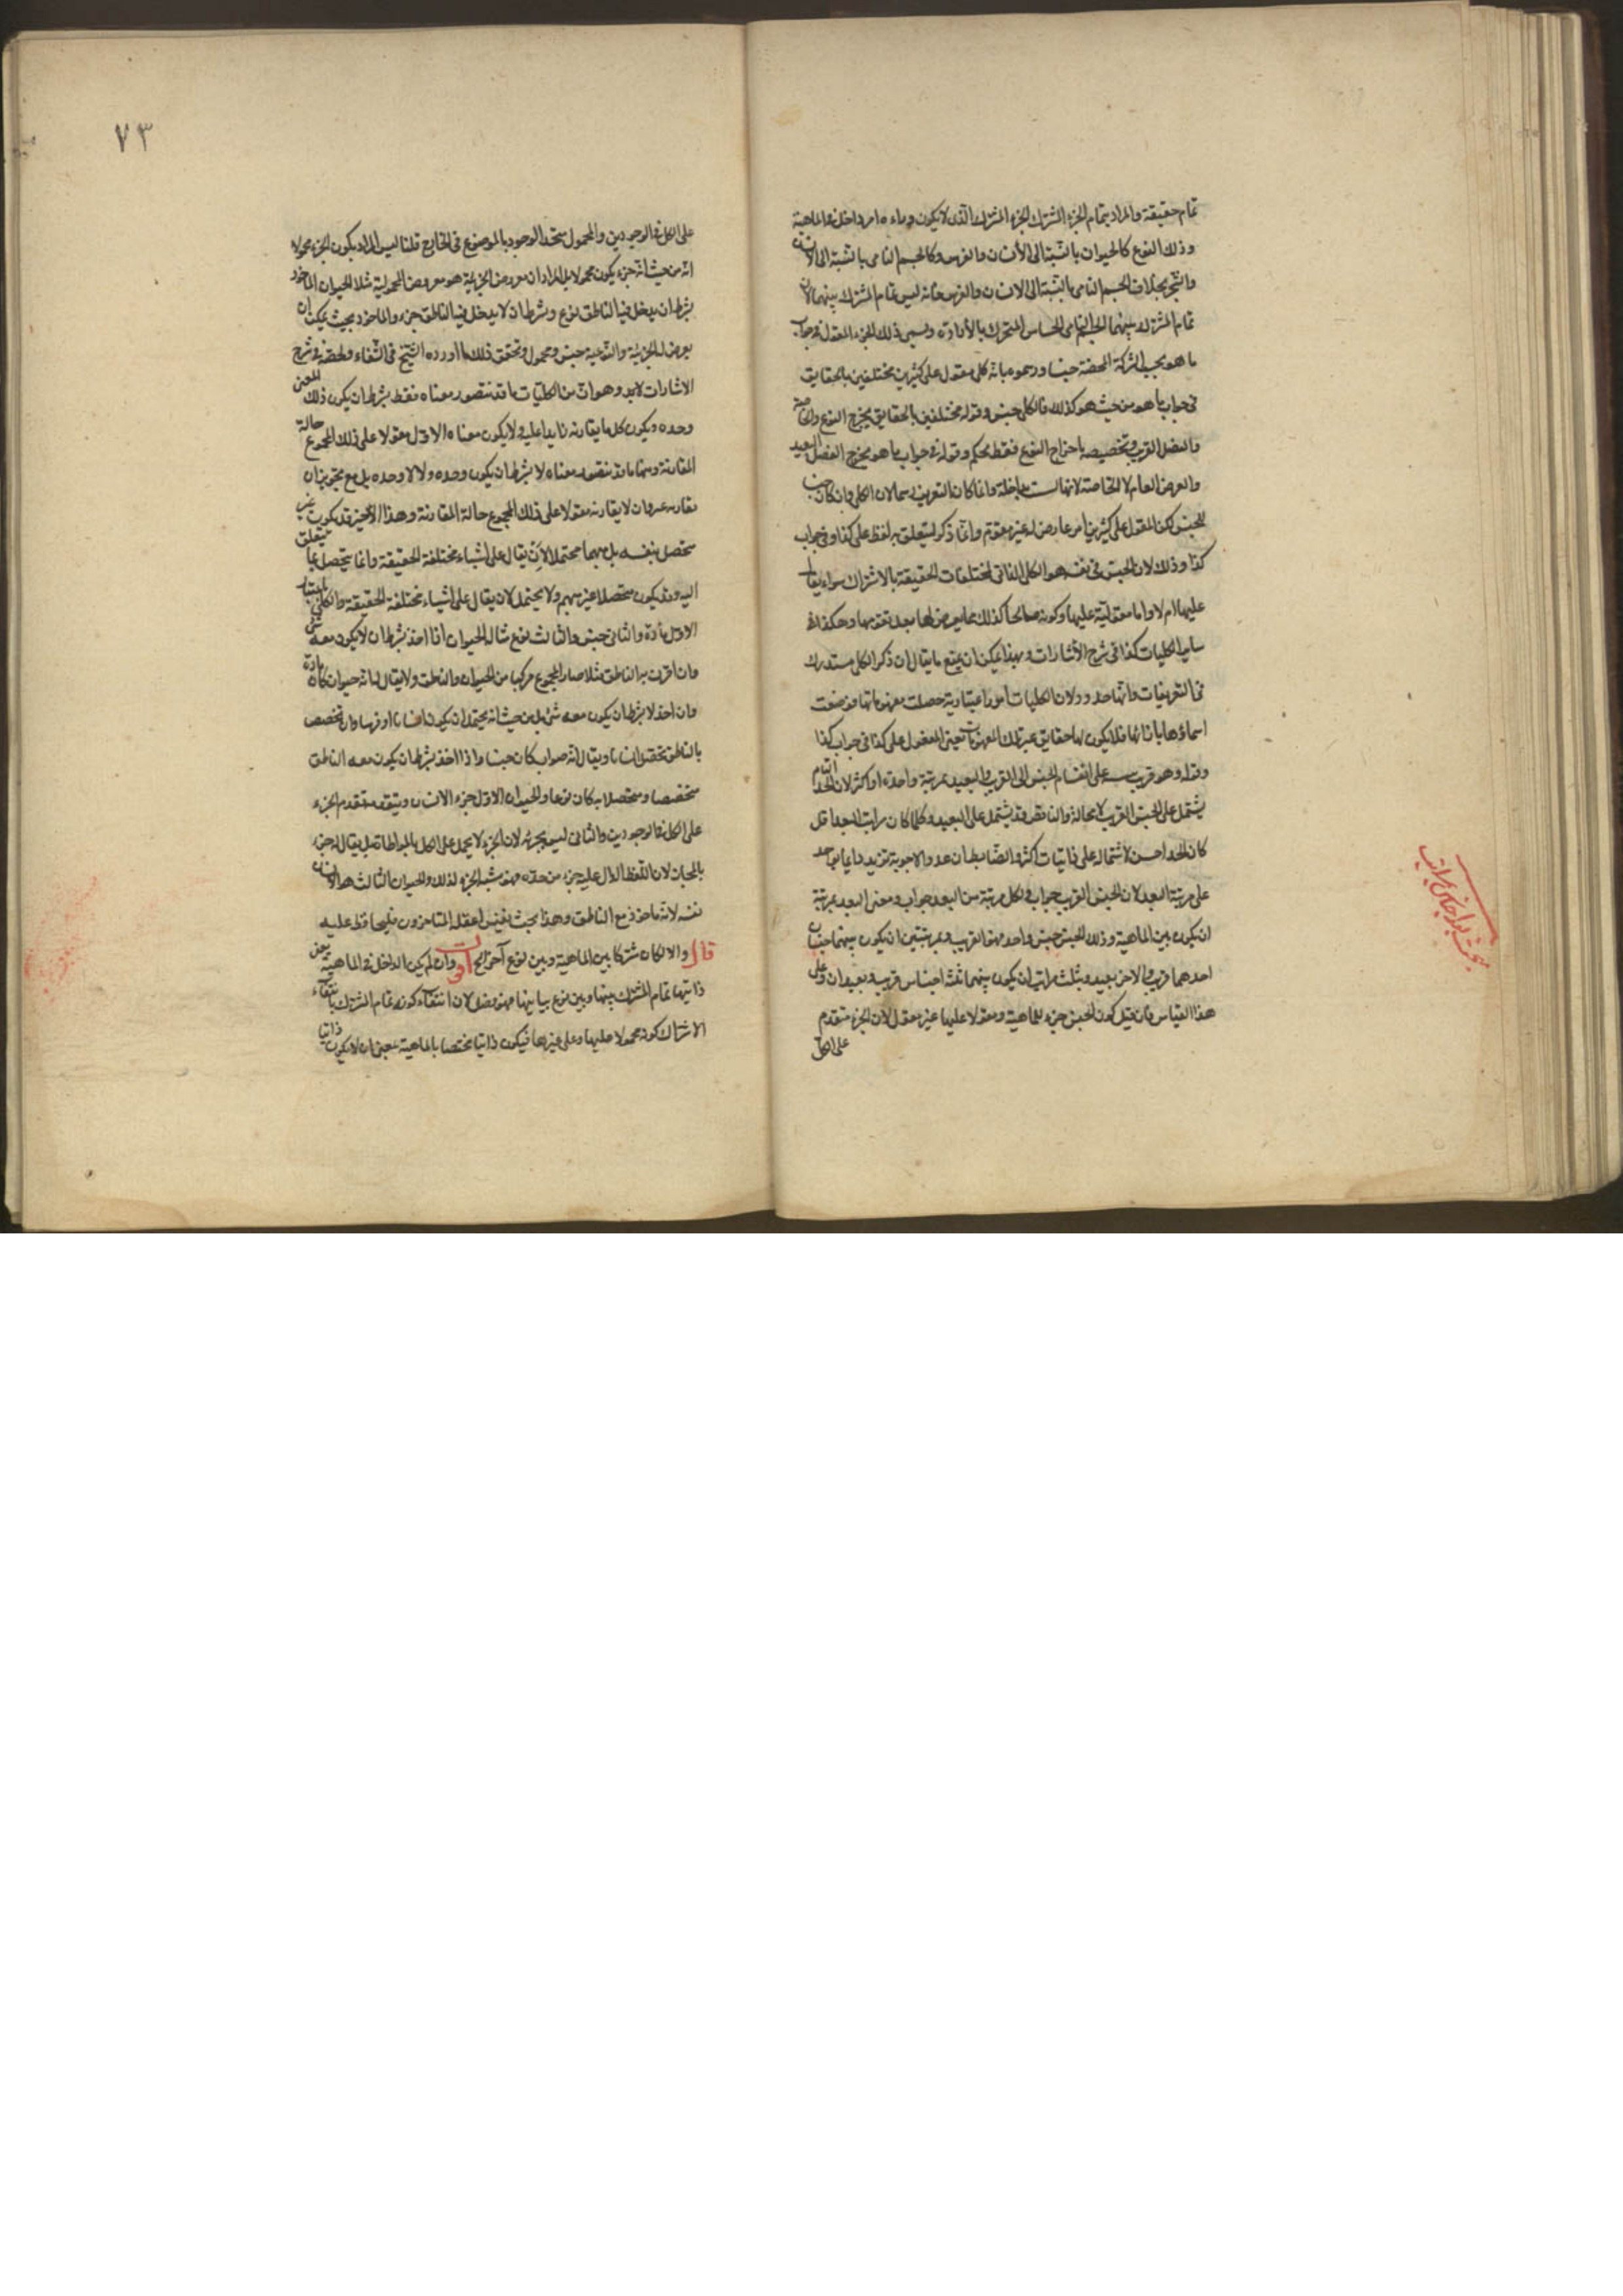 تمام حقيقة والمراد بتمام الجزء المشترك الجزء المشترك الذى لا يكون وراءه امر داخل فى الماهية
وذلك النوع كالحيوان بالنسبة الى الانسان والفرس وكالجسم النامى بالنسبة الى الانسان
والشجر بخلاف الجسم النامى بالنسبة الى الانسان والفرس فانه ليس تمام المشترك بينهما لان
تمام المشترك بينهما الجسم النامى الحساس المتحرك بالارادة ويسمى ذلك الجزء المقول فى جواب
ما هو بحسب الشركة المحضة جنسا ورسموه بانه كلى مقول على كثيرين مختلفين بالحقايق
فى جواب ما هو من حيث هو كذلك فالكلى جنس وقوله مختلفين بالحقايق يخرج النوع والخاصة
والفصل القريب وتخصيصه باخراج النوع فقط تحكم وقوله فى جواب ما هو يخرج الفصل البعيد
والعرض العام لا الخاصة لانها ليست بداخلة وانما كان التعريف رسما لان الكلى وان كان جنسا
للجنس لكن المقول على كثيرين امر عارض له غير مقوم وانما ذكر ليتعلق به لفظ على كذا وفى جواب
كذا وذلك لان الجنس فى نفسه هو الكلى الذاتى لمختلفات الحقيقة بالاشتراك سواء يقال
عليها ام لا واما مقوليته عليها وكونه صالحا كذلك مما يعرض لها بعد تقومها وهكذا فى
ساير الكليات كذا فى شرح الاشارات وبهذا يمكن ان يمنع ما يقال ان ذكر الكلى مستدرك
فى التعريفات وانها حدود لان الكليات امور اعتبارية حصلت مفهوماتها فوضعت
اسماؤها بازائها فلا يكون لها حقايق غير تلك المفهومات يعنى المقول على كذا فى جواب كذا
وقوله وهو قريب على انقسام الجنس الى القريب والبعيد بمرتبة واحدة او اكثر لان الحد التام
يشتمل على الجنس القريب لا محالة والناقص قد يشتمل على البعيد وكلما كان مراتب البعد اقل
كان الحد احسن لاشتماله على ذاتيات اكثر والضابط ان عدد الاجوبة تزيد دايما بواحد
على مرتبة البعد لان الجنس القريب جواب ولكل مرتبة من البعد جواب ومعنى البعد بمرتبة
ان يكون بين الماهية وذلك الجنس جنس واحد هو القريب وبمرتبتين ان يكون بينهما جنسان
احدهما قريب والاخر بعيد وبثلث مراتب ان يكون بينهما ثلثة اجناس قريب وبعيدان وعلى
هذا القياس فان قيل كون الجنس جزء للماهية ومقولا عليها غير معقول لان الجزء متقدم
على الكل
٧٣
على الكل فى الوجودين والمحمول متحد الوجود بالموضوع فى الخارج قلنا ليس المراد بكون الجزء محمولا
انه من حيث انه جزء يكون محمولا بل المراد ان معروض الجزئية هو معروض المحمولية مثلا الحيوان الماخوذ
بشرط ان يدخل فيه الناطق نوع وبشرط ان لا يدخل فيه الناطق جزء والماخوذ بحيث يمكن ان
يعرض له الجزئية والنوعية جنس ومحمول وتحقق ذلك ما اورده الشيخ فى الشفاء ولخصه فى شرح
الاشارات لابد وهو ان من الكليات ما قد يتصور معناه فقط بشرط ان يكون ذلك المعنى
وحده ويكون كل ما يقارنه زايدا عليه ولا يكون معناه الاول مقولا على ذلك المجموع حالة
المقارنة ومنها ما قد يتصور معناه لا بشرط ان يكون وحده ولا لا وحده بل مع تجويز ان
يقارنه غيره وان لا يقارنه مقولا على ذلك المجموع حالة المقارنة وهذا الاخير قد يكون غير
متحصل بنفسه بل مبهما محتملا لان يقال على اشياء مختلفة الحقيقة وانما يتحصل بما يتعلق
اليه وقد يكون متحصلا غير مبهم ولا يحتمل لان يقال على اشياء مختلفة الحقيقة والكلى
الاول مادة والثانى جنس والثالث نوع مثاله الحيوان اذا اخذ بشرط ان لا يكون معه شئ
وان اقترن به الناطق مثلا صار المجموع مركبا من الحيوان والناطق ولا يقال له انه حيوان كان مادة
وان اخذ لا بشرط ان يكون معه شئ بل من حيث انه يحتمل ان يكون انسانا او فرسا وان تخصص
بالناطق تحصل انسانا ويقال انه حيوان كان جنسا واذا اخذ بشرط ان يكون معه الناطق
متخصصا ومتحصلا به كان نوعا والحيوان الاول جزء الانسان ويتقدمه تقدم الجزء
على الكل فى الوجودين والثانى ليس بجزئه لان الجزء لا يحمل على الكل بالمواطاة بل يقال له جزء
بالمجاز لان اللفظ الدال عليه جزء من حده فهو شبه الجزء لذلك والحيوان الثالث هو الانسان
نفسه لانه ماخوذ مع الناطق وهذا بحث نفيس اغفله المتاخرون فليحافظ عليه
قال والا لكان مشتركا بين الماهية وبين نوع آخر الخ اقول وان لم يكن الداخل فى الماهية
ذاتيها تمام المشترك بينها وبين نوع يباينها فهو فصل لان انتفاء كونه تمام المشترك بانتفاء
الاشتراك كونه محمولا عليها وعلى غيرها فيكون ذاتيا مختصا بالماهية بمعنى ان لا يكون ذاتيا